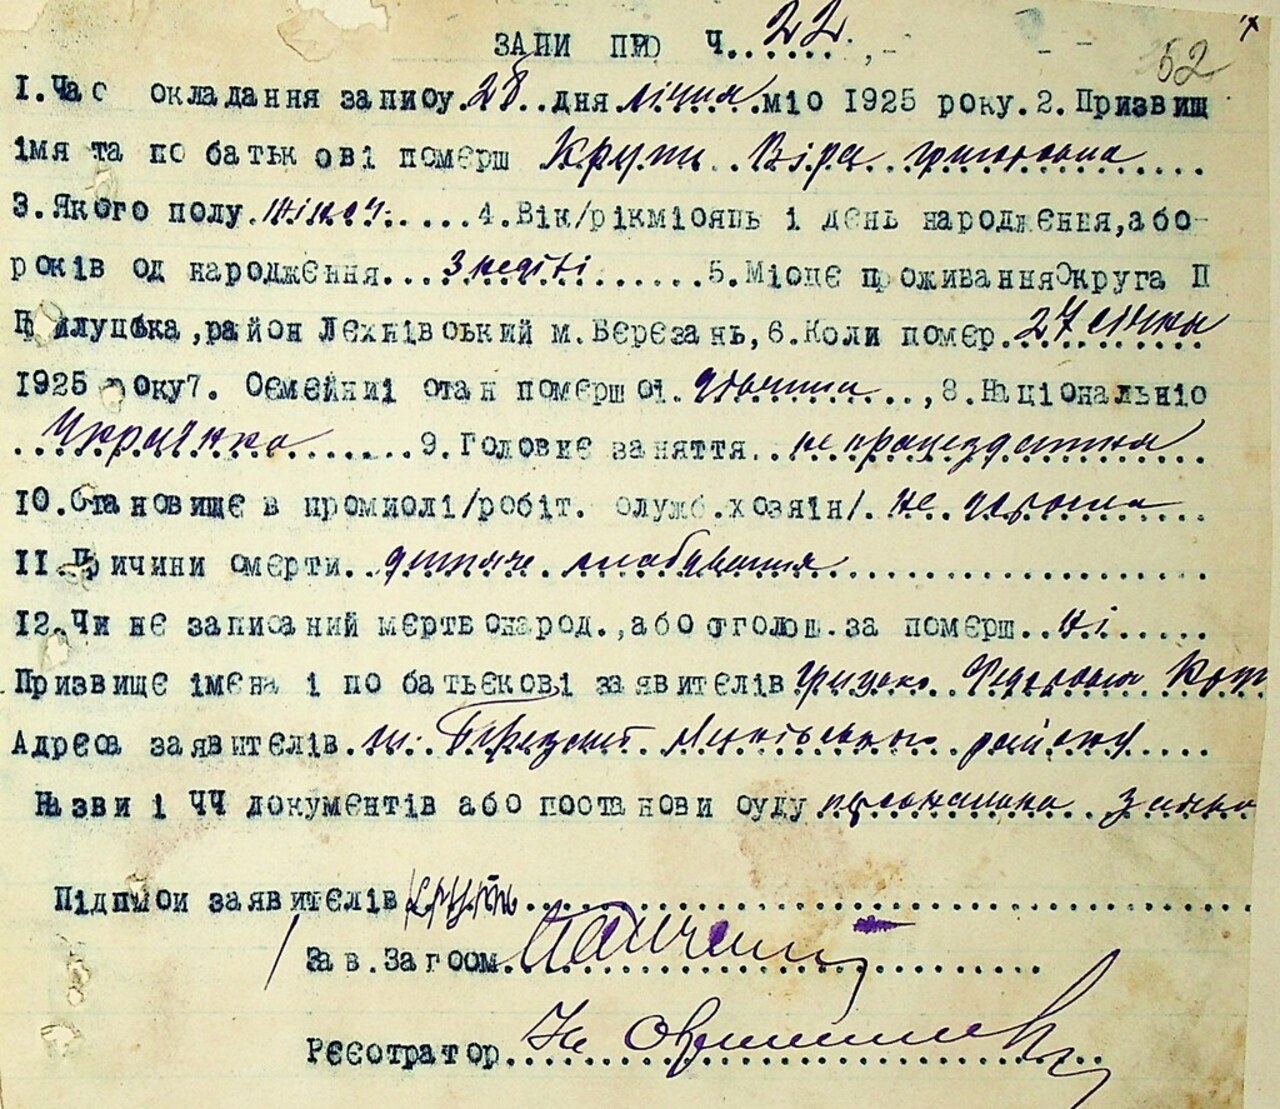 ЗАПИ ПРО Ч. 22. 52
I. Час складання запису. 28. дня січня міс 1925 року. 2. Призвищ
імя та по батькові помєрш Круть Віра Григоровна
3. Якого полу. жіноч. 4. Вік/рікмісяць і дєнь народжєння, або
років од народжєння 3 неділі 5. Місцє проживання Округа П
Прилуцька, район Лєхнівський м. Бєрєзань, 6. Коли помєр. 27 січня
1925 року 7. Сємєйниі стан помєршоі. дівчина, 8. Національніс
Українка 9. Головнє заняття. непрацездатна
10. Становищє в промислі/робіт. служб. хозяін/. не
II. Причини смєрти. дитяче слабування
12. Чи нє записаний мєртвонарод., або оголош. за помєрш. ні
Призвищє імєна і по батьєкові заявитєлів Грицько Федорович Круть
Адрєса заявитєлів. м. Березань району
Назви і ЧЧ докумєнтів або постанови суду персональна заява
Підписи заявитєлів Круть
Зав. Загсом.
Рєєстратор.